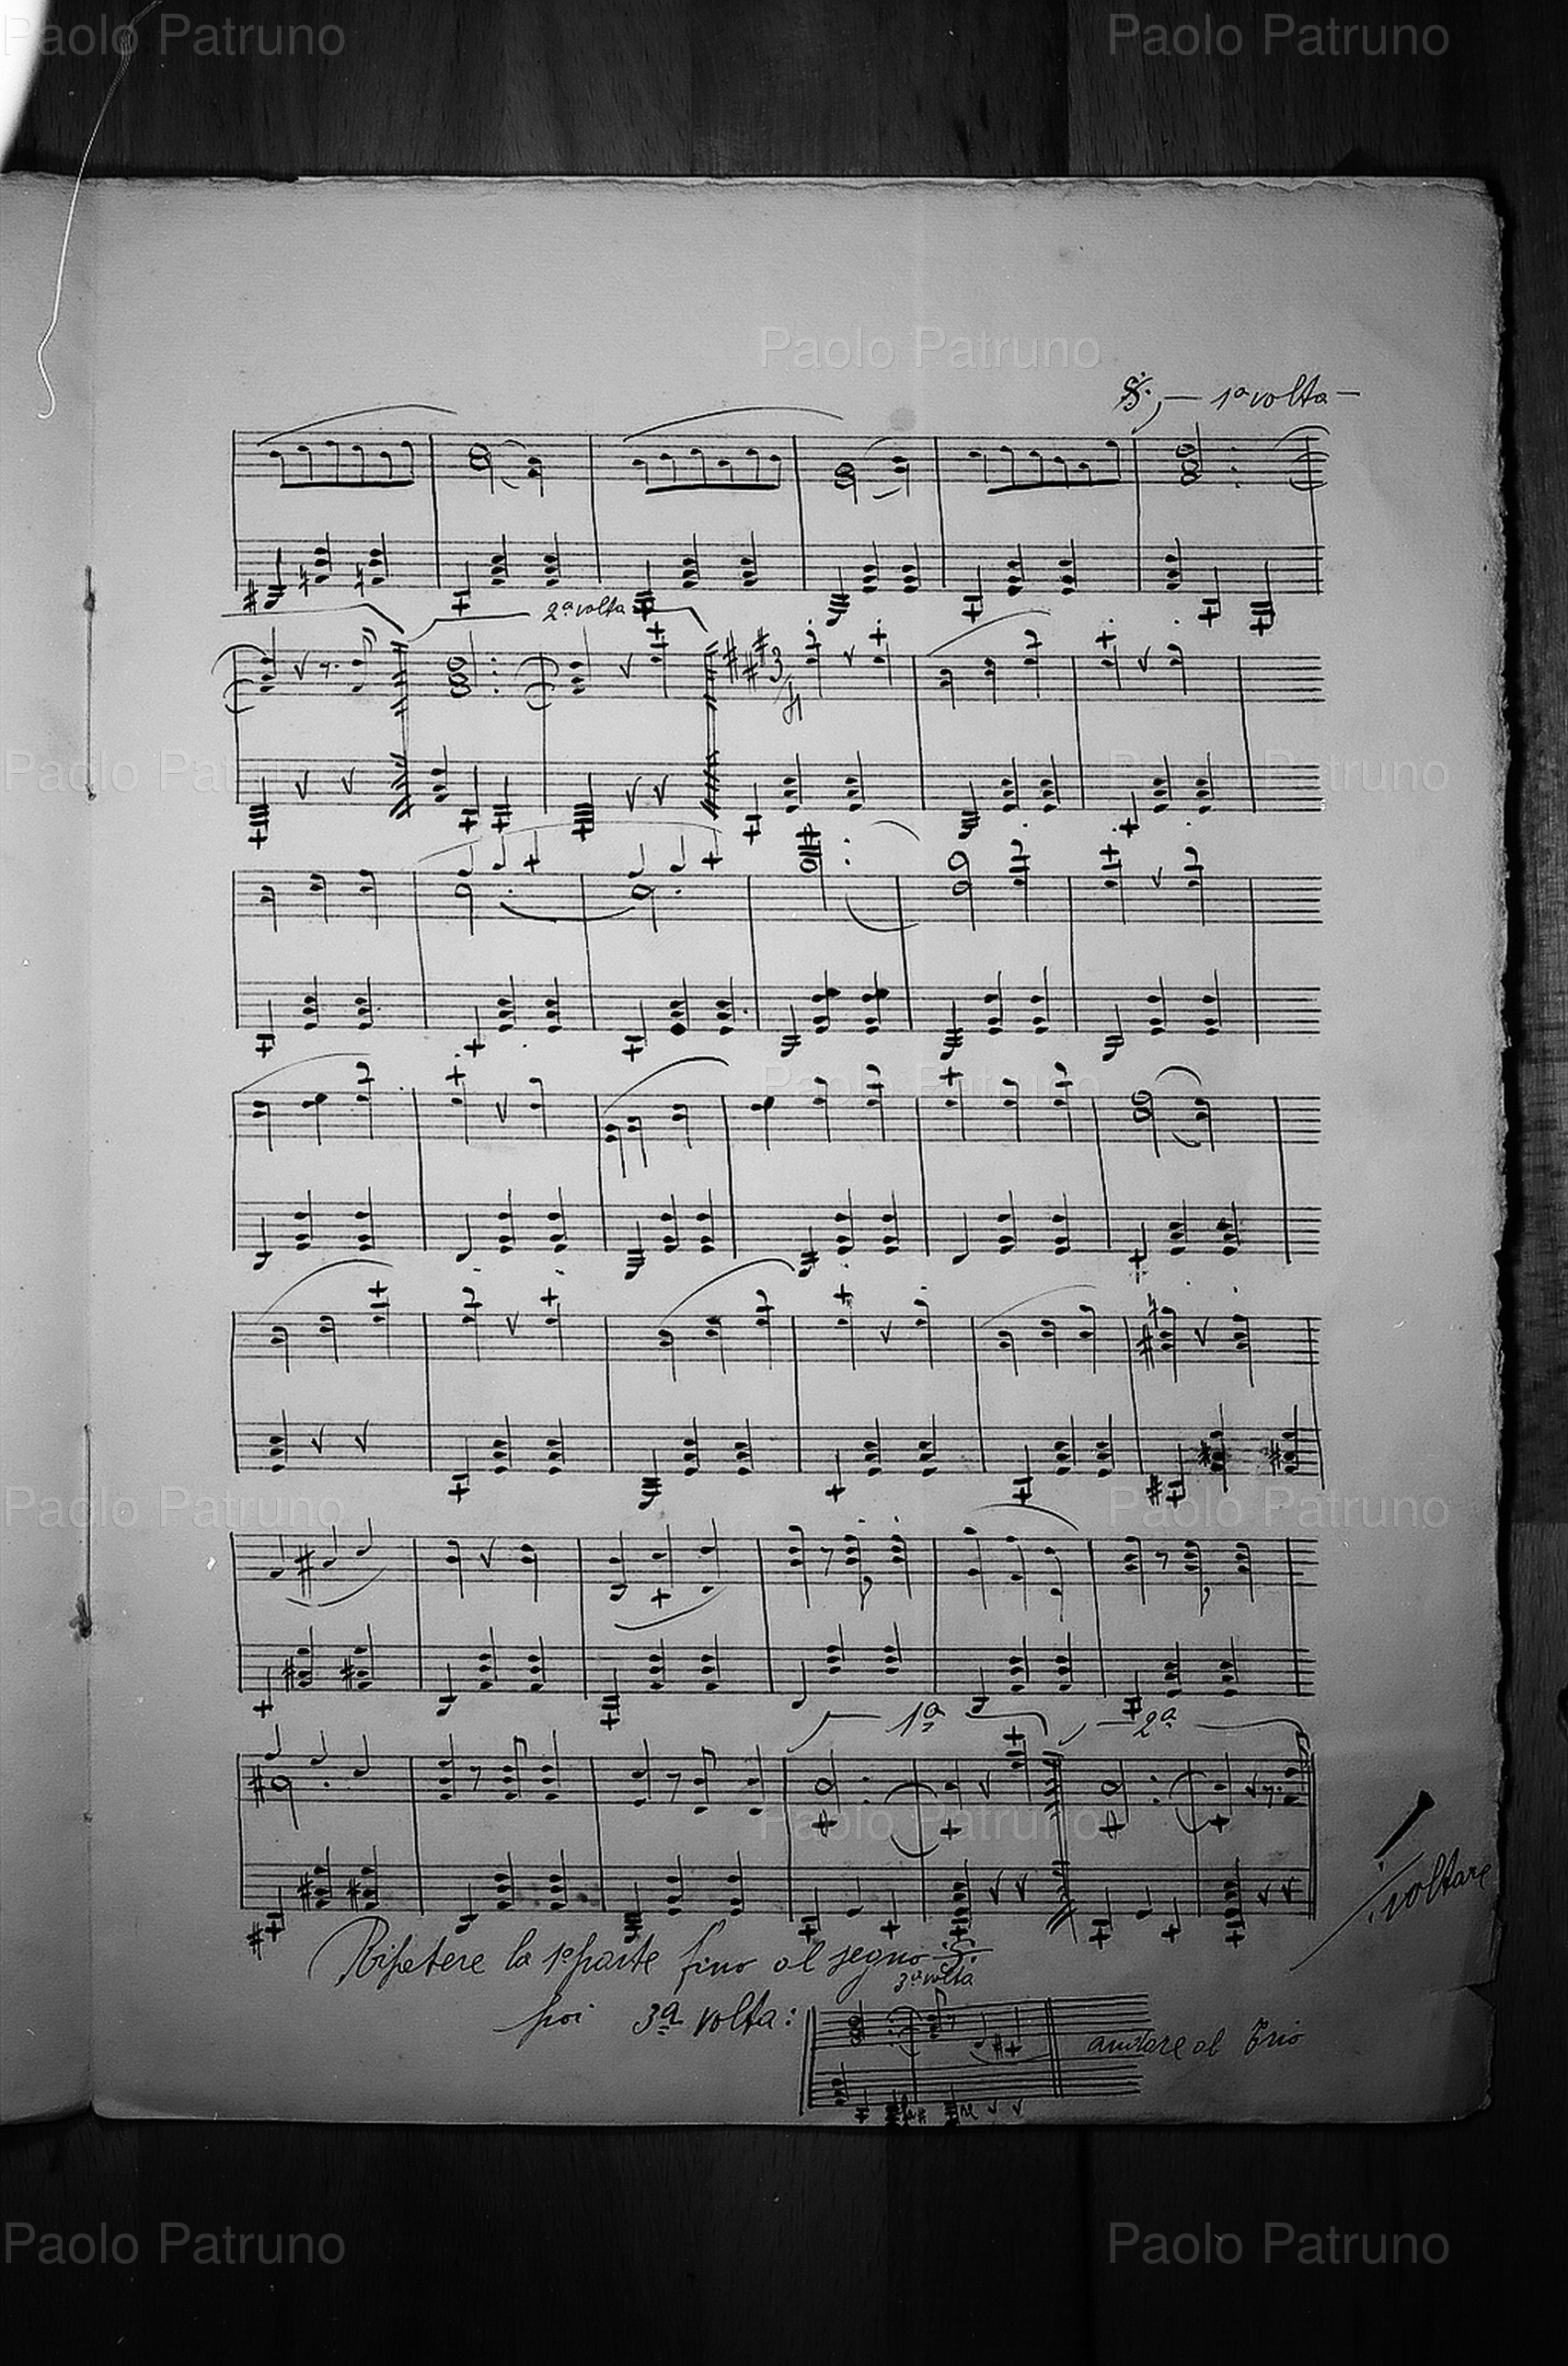 Paolo Patruno Paolo Patruno
Paolo Patruno
𝄋 — 1ª volta —
2ª volta
Paolo Patruno Paolo Patruno
Paolo Patruno
Paolo Patruno Paolo Patruno
1ª 2ª
Paolo Patruno
voltare
Ripetere la 1ª parte fino al segno 𝄋
3ª volta
poi 3ª volta:
andare al Trio
Paolo Patruno Paolo Patruno